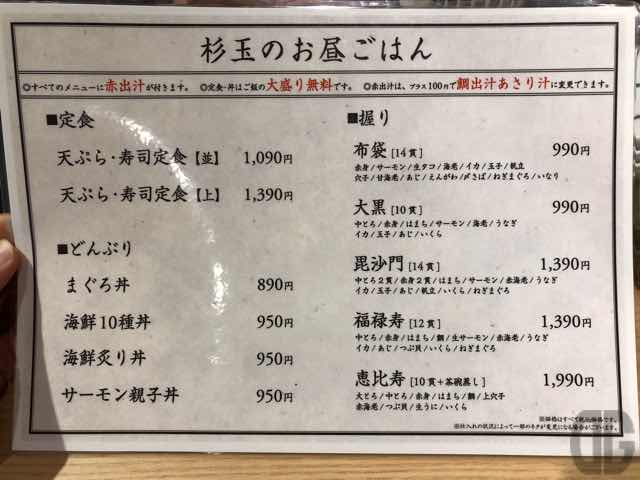 杉玉のお昼ごはん
◎すべてのメニューに赤出汁が付きます。 ◎定食・丼はご飯の大盛り無料です。 ◎赤出汁は、プラス100円で鯛出汁あさり汁に変更できます。
■定食
天ぷら・寿司定食【並】 1,090円
天ぷら・寿司定食【上】 1,390円
■どんぶり
まぐろ丼 890円
海鮮10種丼 950円
海鮮炙り丼 950円
サーモン親子丼 950円
■握り
布袋［14貫］ 990円
赤身/サーモン/生タコ/海老/イカ/玉子/帆立
穴子/甘海老/あじ/えんがわ/〆さば/ねぎまぐろ/いなり
大黒［10貫］ 990円
中とろ/赤身/はまち/サーモン/海老/うなぎ
イカ/玉子/あじ/いくら
毘沙門［14貫］ 1,390円
中とろ2貫/赤身2貫/はまち/サーモン/赤海老/うなぎ
イカ/玉子/あじ/帆立/いくら/ねぎまぐろ
福禄寿［12貫］ 1,390円
中とろ/赤身/はまち/鯛/生サーモン/赤海老/うなぎ
イカ/あじ/つぶ貝/いくら/ねぎまぐろ
恵比寿［10貫+茶碗蒸し］ 1,990円
大とろ/中とろ/赤身/はまち/鯛/上穴子
赤海老/つぶ貝/生うに/いくら
※価格はすべて税込価格です。
※仕入れの状況によって一部のネタが変更になる場合がございます。